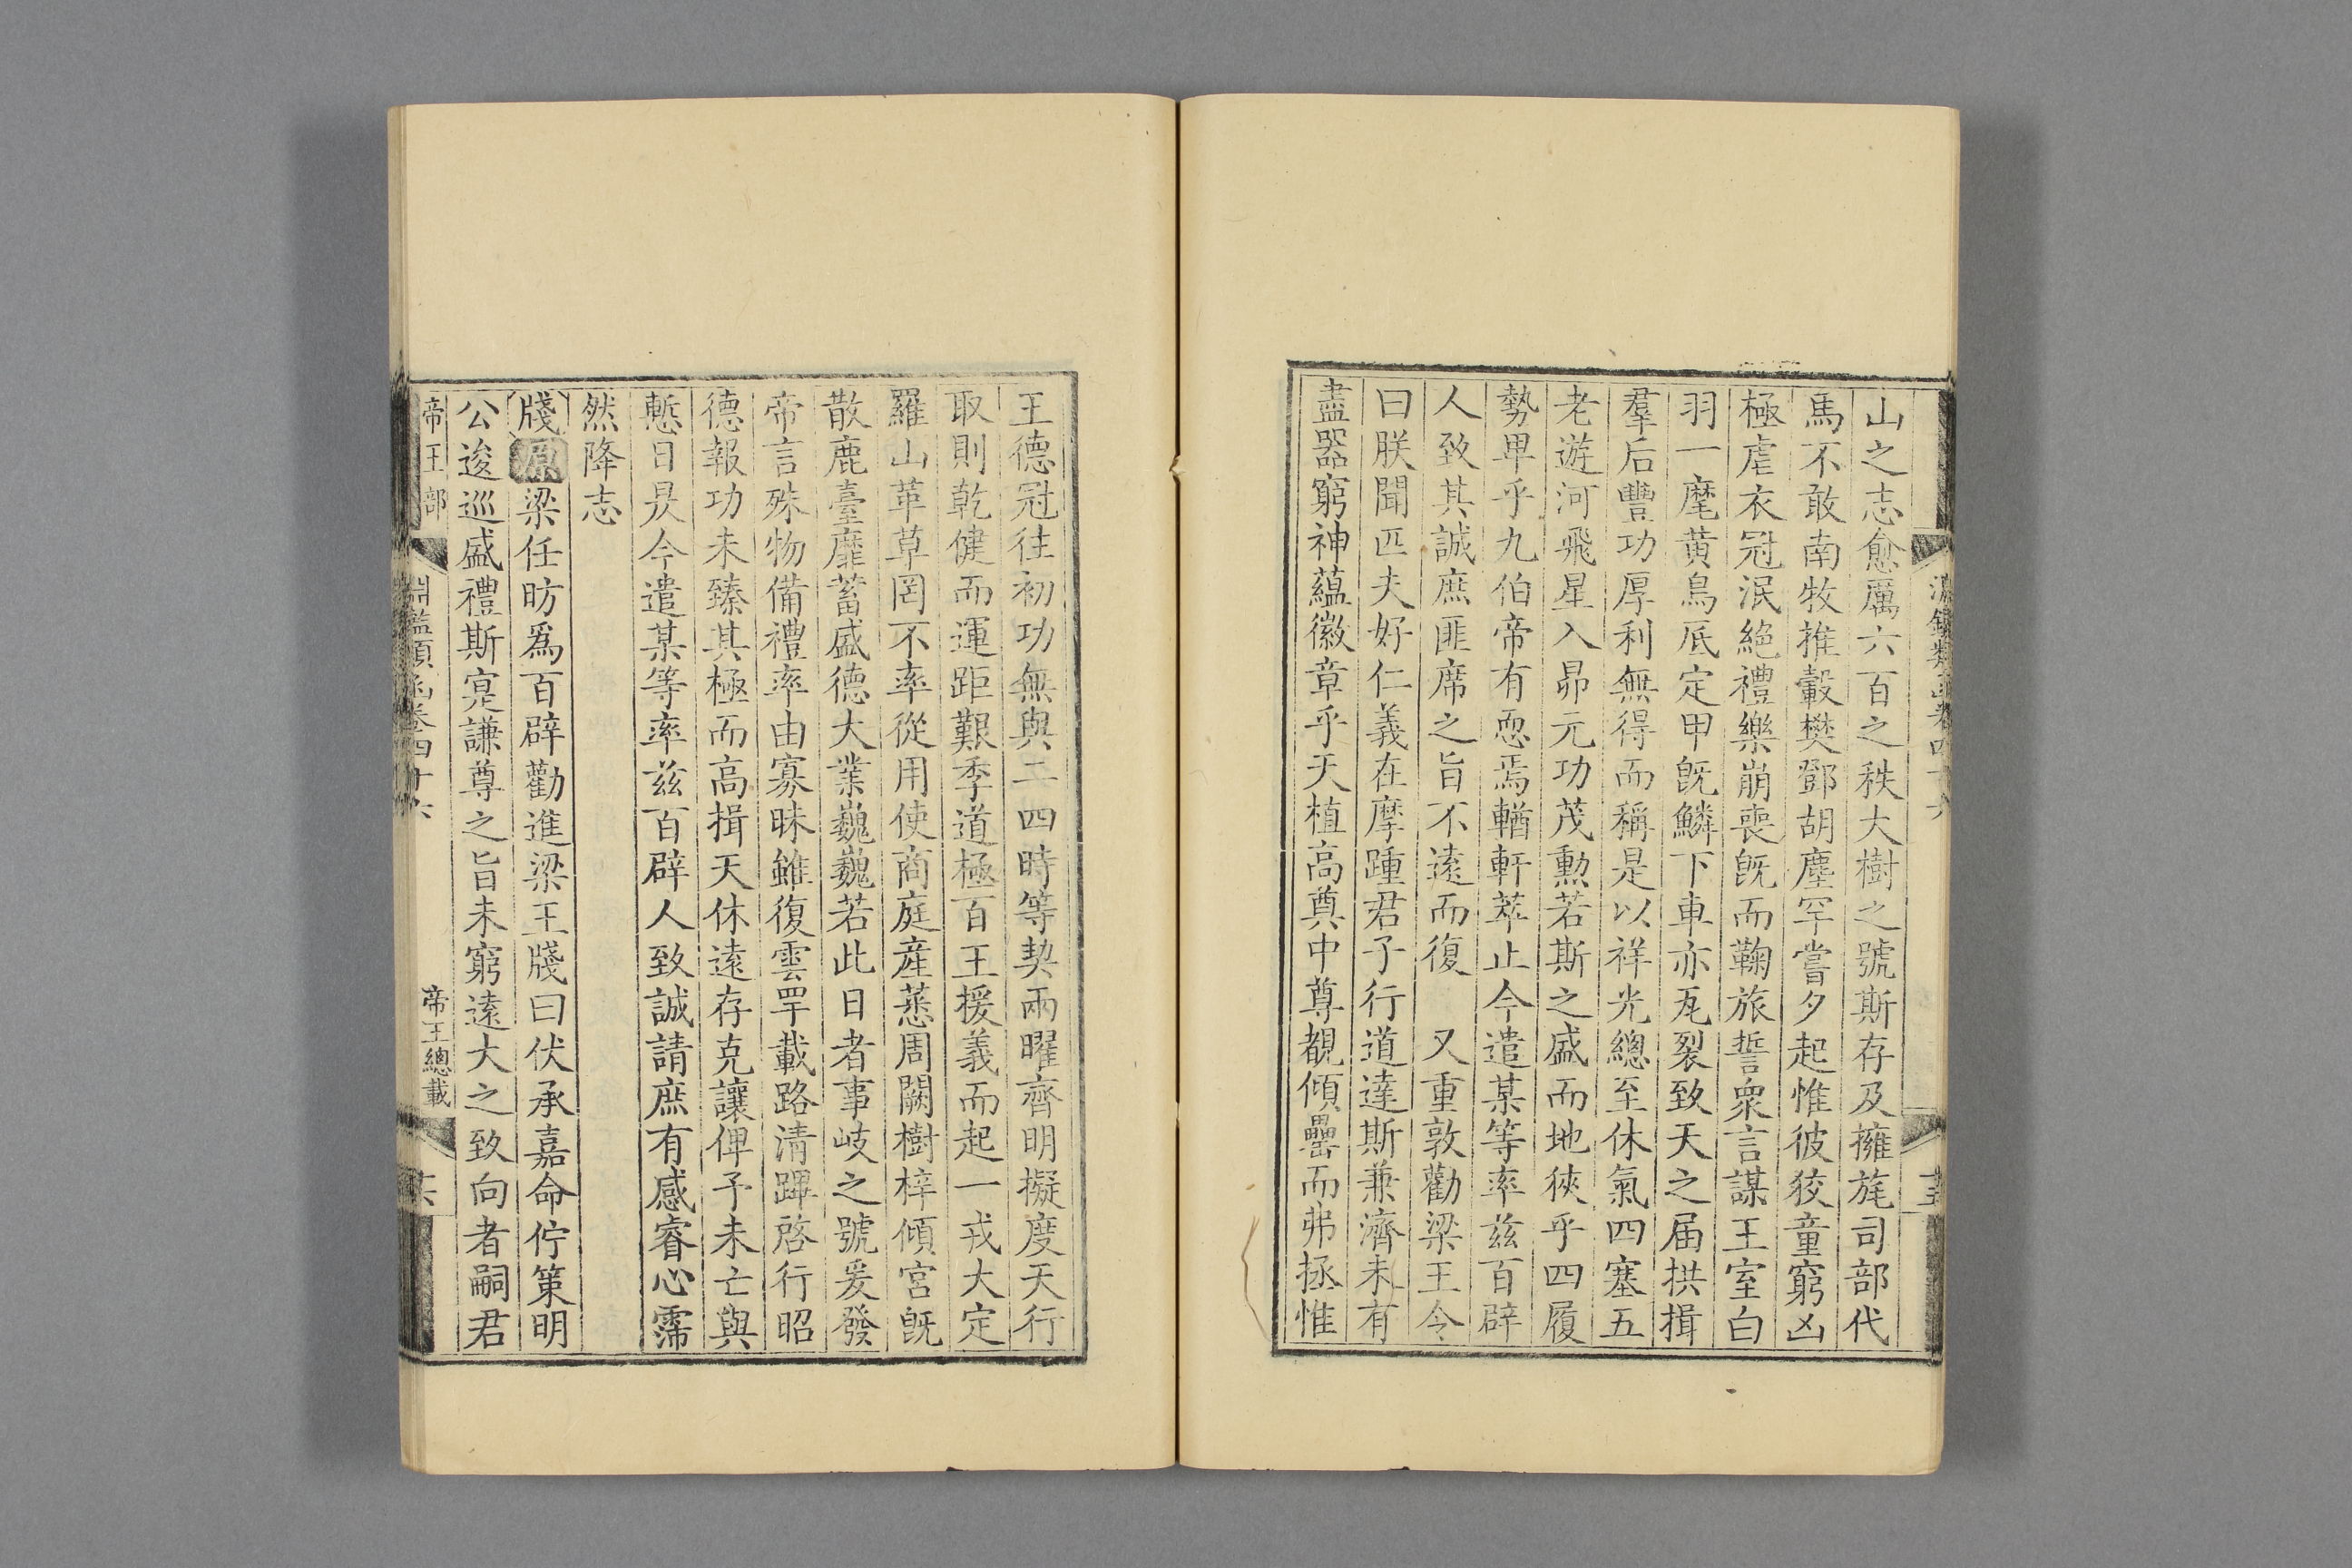 淵鑑類函卷四十六
山之志愈厲六百之秩大樹之號斯存及擁旄司部代
馬不敢南牧推轂樊鄧胡塵罕嘗夕起惟彼狡童窮凶
極虐衣冠泯絕禮樂崩喪旣而鞠旅誓衆言謀王室白
羽一麾黄鳥底定甲旣鱗下車亦瓦裂致天之届拱揖
羣后豐功厚利無得而稱是以祥光總至休氣四塞五
老遊河飛星入昴元功茂勲若斯之盛而地狹乎四履
勢卑乎九伯帝有恧焉輶軒萃止今遣某等率兹百辟
人致其誠庶匪席之旨不遠而復　又重敦勸梁王令
曰朕聞匹夫好仁義在摩踵君子行道達斯兼濟未有
盡器窮神蘊徽章乎天植高奠中尊覩傾罍而弗拯惟
王德冠往初功無與二四時等契兩曜齊明擬度天行
取則乾健而運距艱季道極百王援義而起一戎大定
羅山革草罔不率從用使商庭産蒸周闕樹梓傾宮旣
散鹿臺靡蓄盛德大業巍巍若此日者事岐之號爰發
帝言殊物備禮率由寡昧雖復雲罕載路清蹕啓行昭
德報功未臻其極而高揖天休遠存克讓俾予未亡與
慙日昃今遣某等率兹百辟人致誠請庶有感睿心霈
然降志
牋原梁任昉爲百辟勸進梁王牋曰伏承嘉命佇策明
公逡巡盛禮斯寔謙尊之旨未窮遠大之致向者嗣君
帝王部
淵鑑類函卷四十六
帝王總載